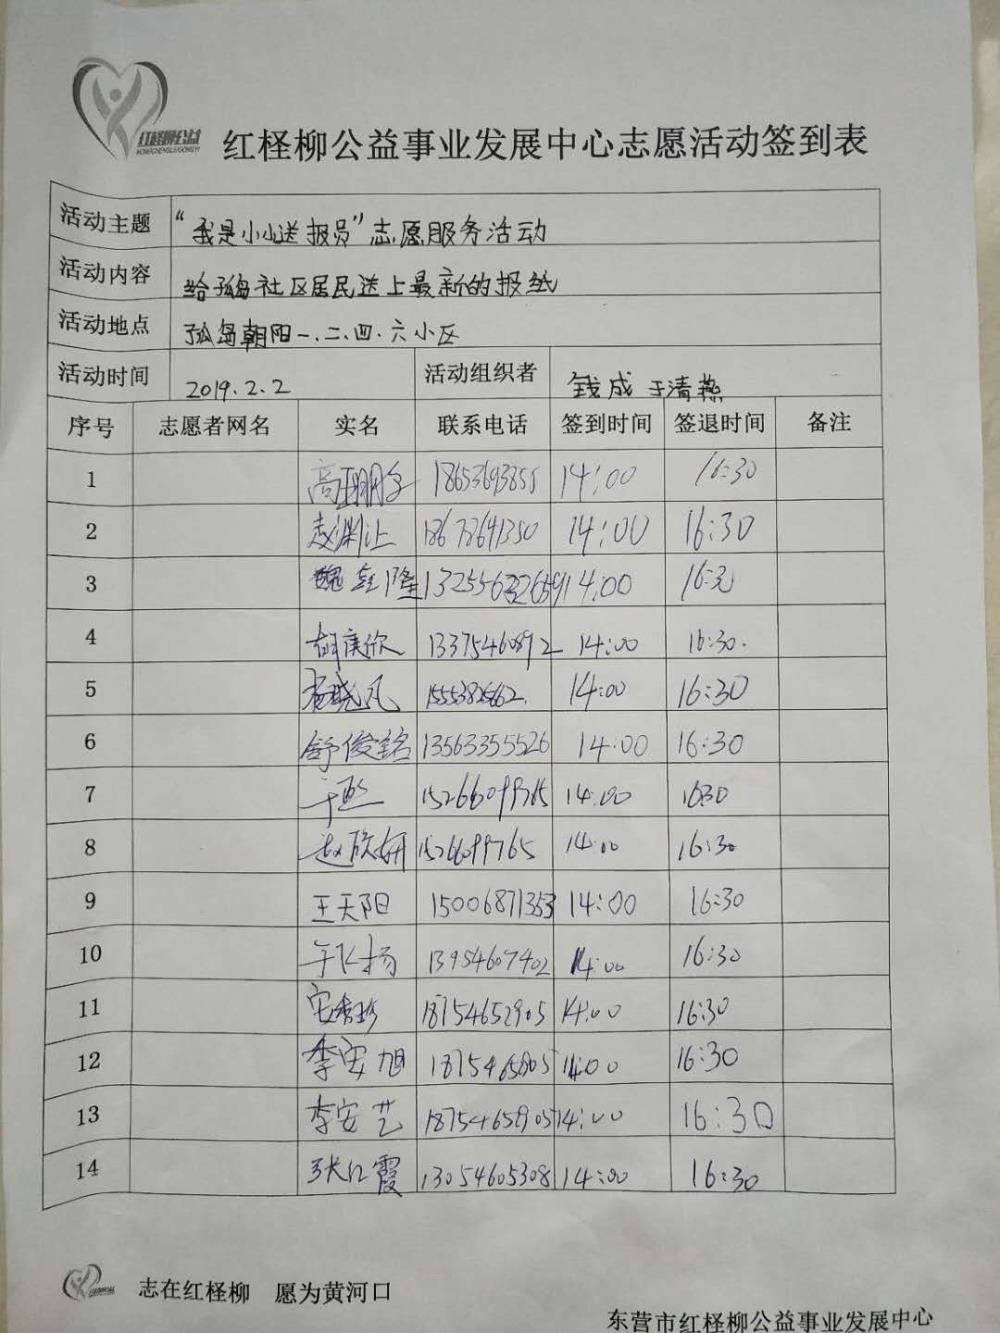 红柽柳公益
HONGCHENGLIUGONGYI
红柽柳公益事业发展中心志愿活动签到表
活动主题 “我是小小送报员”志愿服务活动
活动内容 给孤岛社区居民送上最新的报纸
活动地点 孤岛朝阳一.二.四.六小区
活动时间 2019.2.2 活动组织者 钱成 于清燕
序号 志愿者网名 实名 联系电话 签到时间 签退时间 备注
1 18653693855 14:00 16:30
2 14:00 16:30
3 14:00
4 胡庚欣 13375460892 14:00 16:30.
5 杨晓凡 14:00 16:30
6 舒俊铭 13563355526 14:00 16:30
7 14:00 1630
8 赵欣妍 15266099765 14:00 16:30
9 王天阳 15006871353 14:00 16:30
10 于飞扬 13954607402 14:00 16:30
11 安秀珍 18754652905 14:00 16:30
12 李安旭 14:00 16:30
13 李安艺 18754652905 14:00 16:30
14 张红霞 13054605308 14:00 16:30
志在红柽柳 愿为黄河口
东营市红柽柳公益事业发展中心